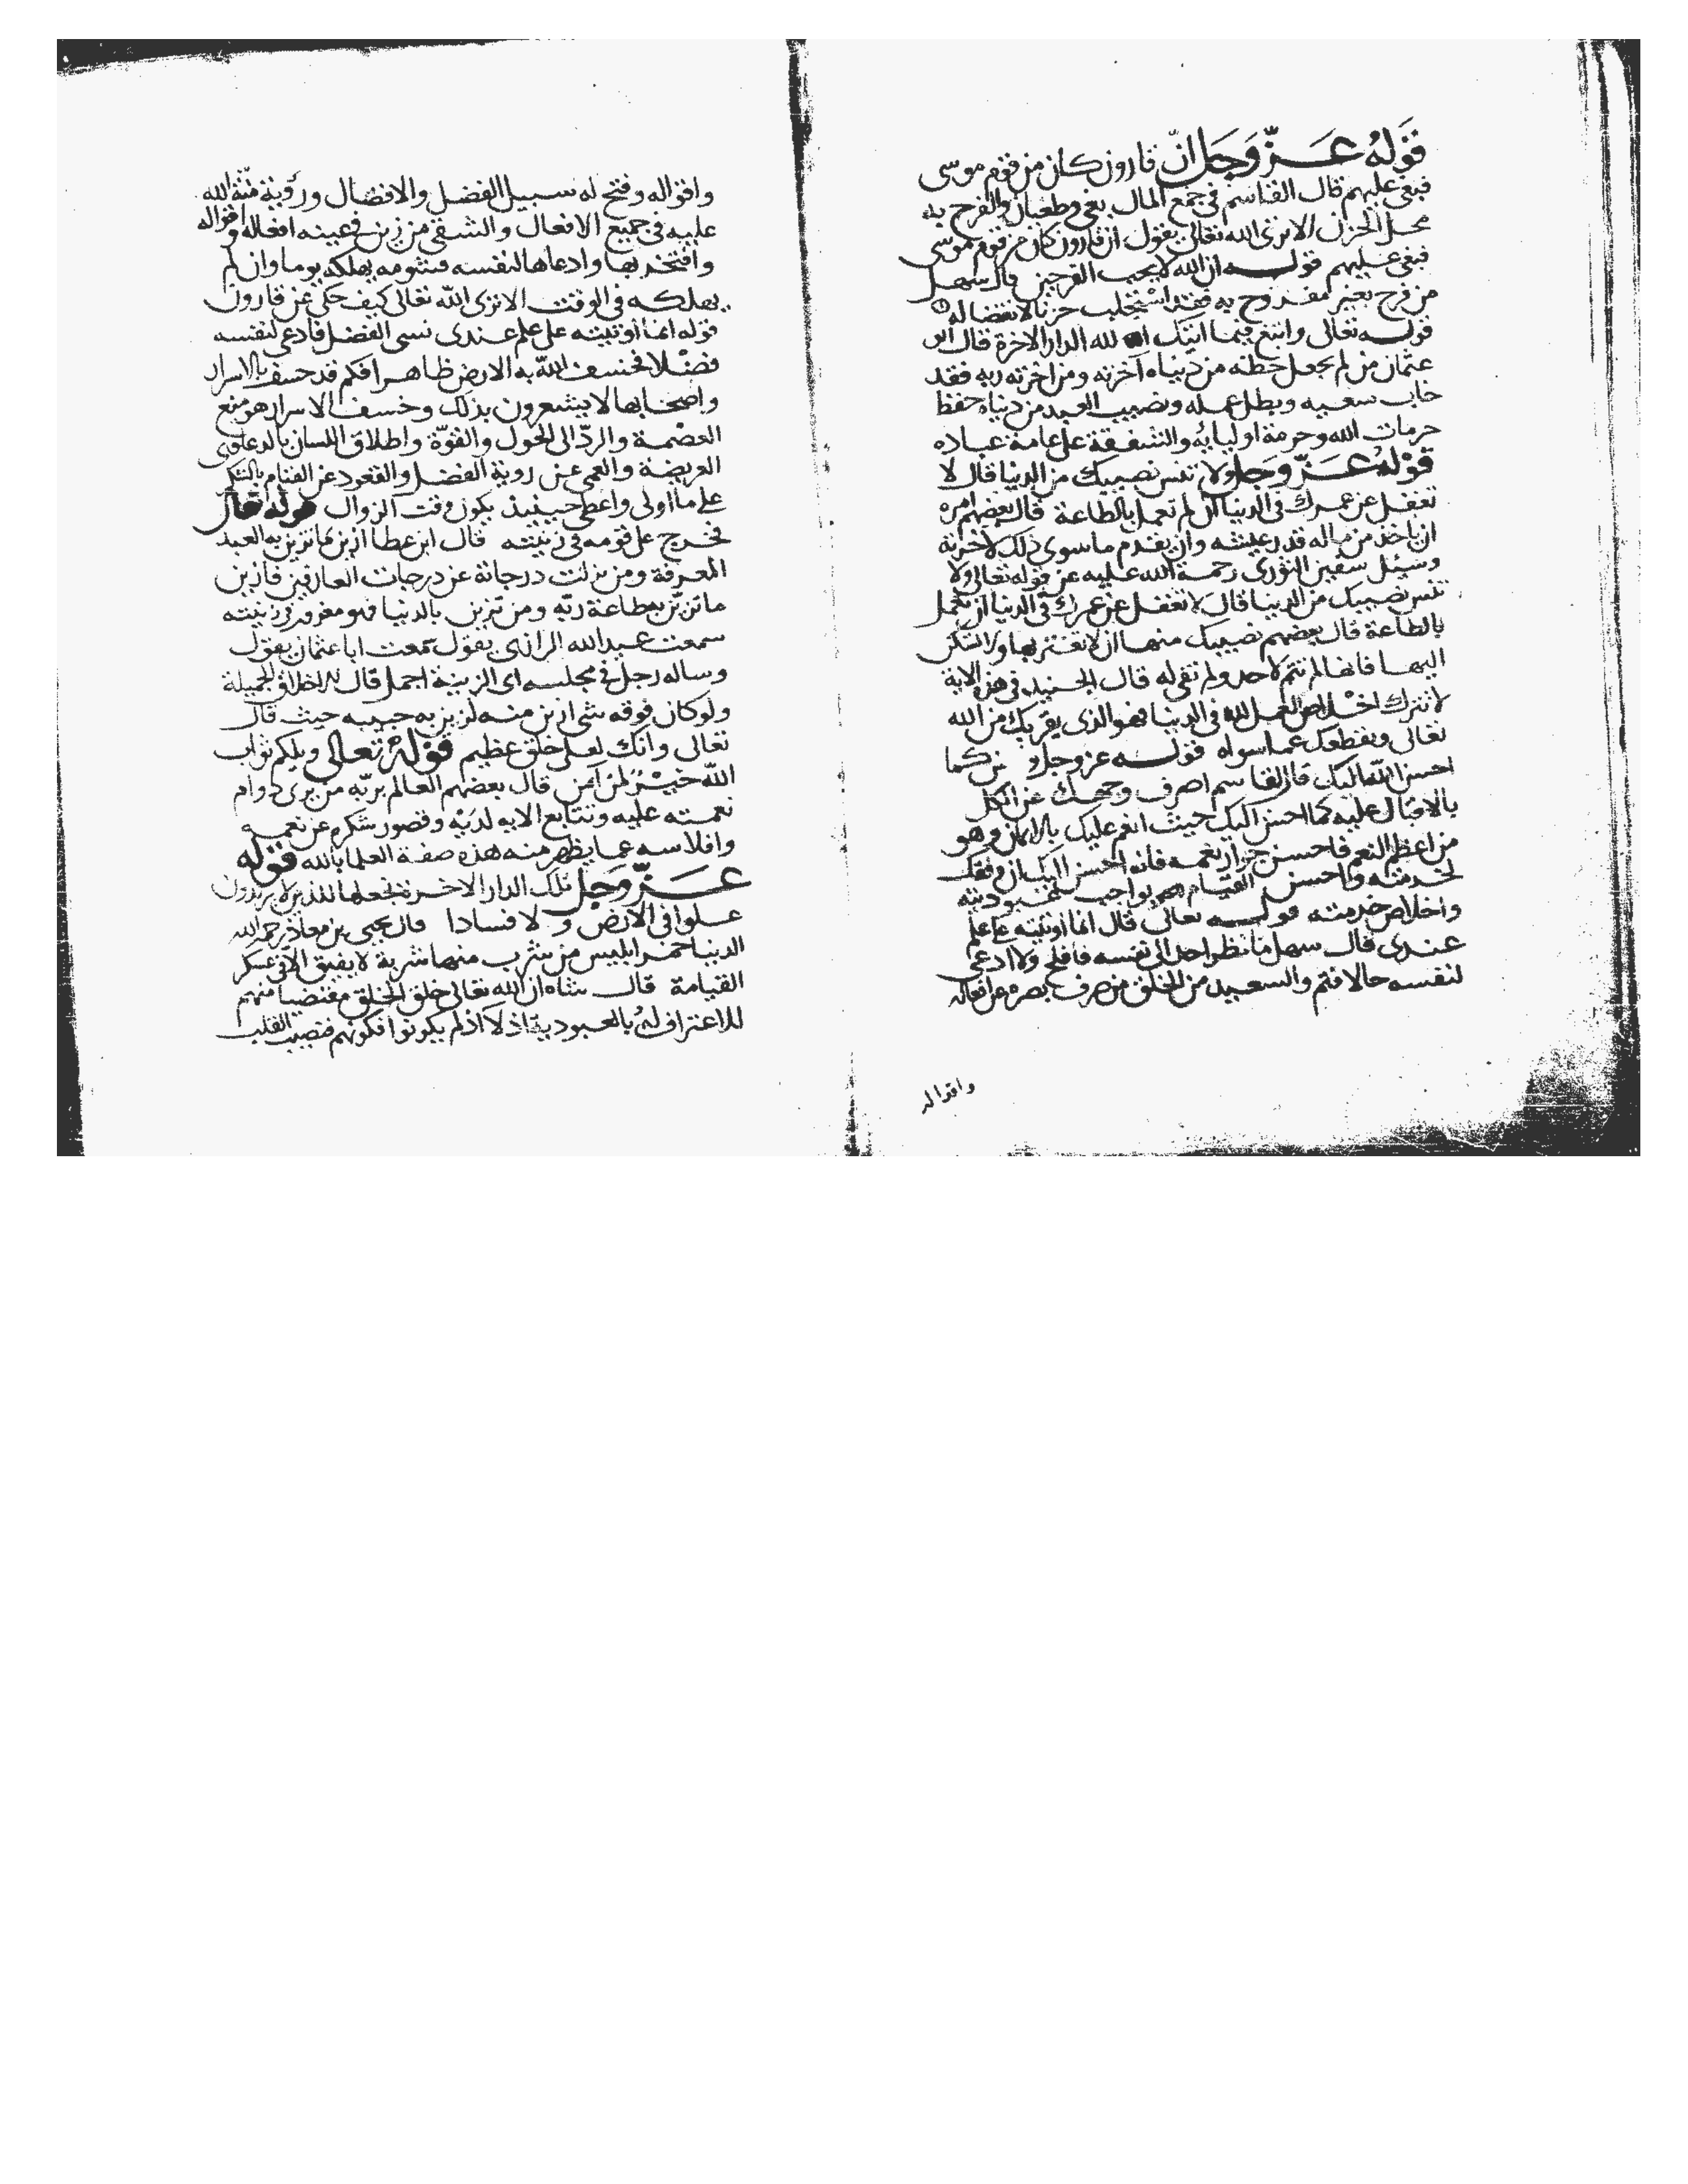 قوله عز وجل ان قارون كان من قوم موسى
فبغى عليهم قال القاسم في جمع المال بغي وطغيان والفرح به
محل الحزن الا ترى الله تعالى يقول ان قارون كان من قوم موسى
فبغى عليهم قوله ان الله لا يحب الفرحين قال سهل
من فرح بغير مفروح به فقد استجلب حزنا لا انقضا له
قوله تعالى وابتغ فيما اتيك الله الدار الاخرة قال ابو
عثمان من لم يجعل حظه من دنياه آخرته ومن اخرته ربه فقد
خاب سعيه وبطل عمله ونصيب العبد من دنياه حفظ
حرمات الله وحرمة اوليايه والشفقة على عامة عباده
قوله عز وجل ولا تنس نصيبك من الدنيا قال لا
تغفل عن عمرك في الدنيا ان لم تعمل بالطاعة قال بعضهم امره
ان ياخذ من ماله قدر عيشه وان يقدم ما سوى ذلك لاخرته
وسيل سفين الثورى رحمة الله عليه عن قوله تعالى ولا
تنس نصيبك من الدنيا قال لا تغفل عن عمرك في الدنيا ان تعمل
بالطاعة قال بعضهم نصيبك منها ان لا تغتر بها ولا تسكن
اليها فانها لم تتم لاحد ولم تفى له قال الجنيد في هذه الاية
لا تترك اخلاص العمل لله في الدنيا فهو الذى يقربك من الله
تعالى ويقطعك عما سواه قوله عز وجل و كما
احسن الله اليك قال القاسم اصرف وجهك عن الكل
بالاقبال عليه كما احسن اليك حيث انعم عليك بالايمان وهو
من اعظم النعم فاحسن جوار نعمه فانه احسن اليك ان وفقك
لخدمته واحسن القيام بواجب عبوديته
واخلاص خدمته قوله تعالى قال انما اوتيته على علم
عندى قال سهل ما نظر احد الى نفسه فافلح ولا ادعى
لنفسه حالا فتم والسعيد من الخلق من صرف بصره عن افعاله
واقواله
واقواله وفتح له سبيل الفضل والافضال ورؤية منة الله
عليه في جميع الافعال والشقي من زين في عينه افعاله واقواله
وافتخر بها وادعاها لنفسه فشومه يهلكه يوما وان لم
يهلكه في الوقت الا ترى الله تعالى كيف حكى عن قارون
قوله انما اوتيته على علم عندى نسى الفضل فادعى لنفسه
فضلا فخسف الله به الارض ظاهرا فكم قد خسف بالاسرار
واصحابها لا يشعرون بذلك وخسف الاسرار هو منع
العصمة والرد الى الحول والقوة واطلاق اللسان بالدعاوى
العريضة والعمى عن روية الفضل والقعود عن القيام بالشكر
على ما اولى واعطى حينيذ يكون وقت الزوال قوله تعالى
فخرج على قومه في زينته قال ابن عطا ازين ما تزين به العبد
المعرفة ومن نزلت درجاته عن درجات العارفين فازين
ما تزين به طاعة ربه ومن تزين بالدنيا فهو مغرور في زينته
سمعت عبد الله الرازى يقول سمعت ابا عثمان يقول
وساله رجل في مجلسه اى الزينة اجمل قال الاخلاق الجميلة
ولو كان فوقه شى ازين منه لزين به حبيبه حيث قال
تعالى وانك لعلى خلق عظيم قوله تعالى ويلكم ثواب
الله خير لمن آمن قال بعضهم العالم بربه من يرى دوام
نعمته عليه وتتابع الايه لديه وقصور شكره عن نعمه
وافلاسه عما يظهر منه هذه صفة العلما بالله قوله
عز وجل تلك الدار الاخرة نجعلها للذين لا يريدون
علوا في الارض ولا فسادا قال يحيى بن معاذ رحمه الله
الدنيا خمر ابليس من شرب منها شربة لا يفيق الا في عسكر
القيامة قال شاه ان الله تعالى خلق الخلق مقتضيا منهم
للاعتراف له بالعبودية اذ لا اذ لم يكونوا فكونهم فنصيب القلب